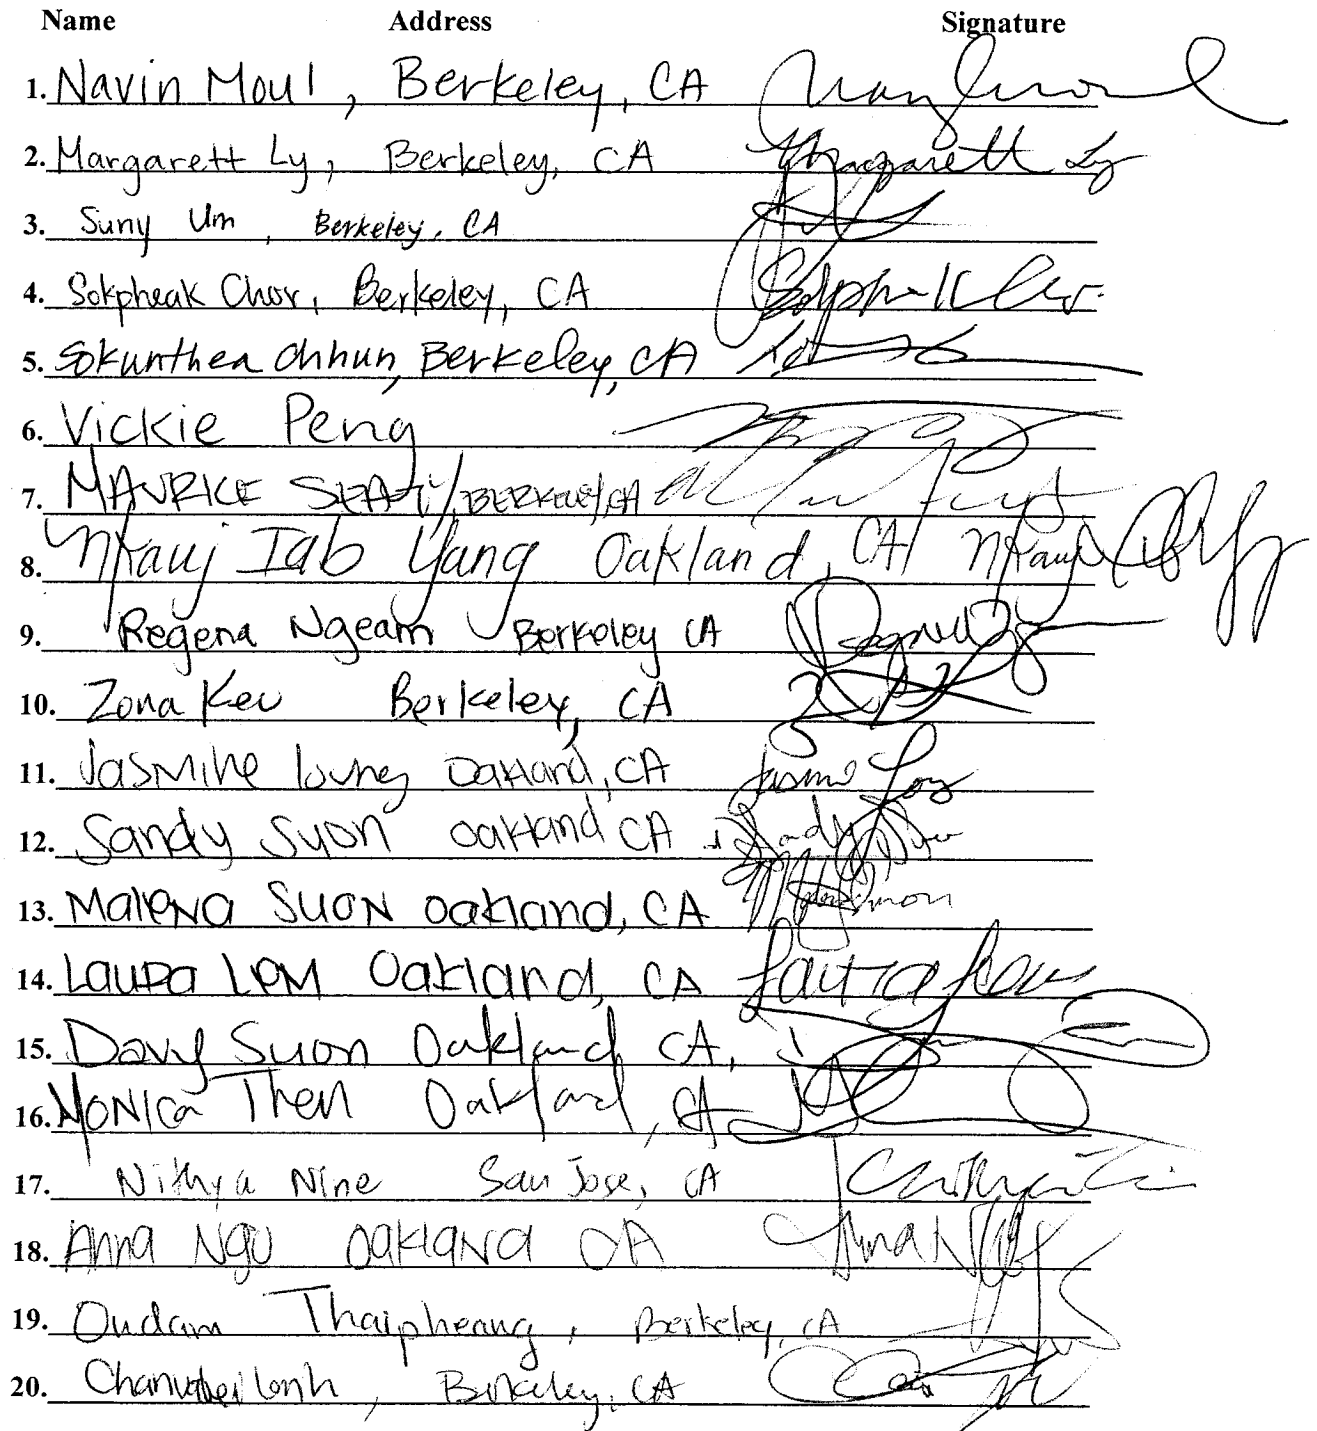 Name Address Signature
1. Navin Moul, Berkeley, CA
2. Margarett Ly, Berkeley, CA Margarett Ly
3. Suny Um, Berkeley, CA
4. Sokpheak Chor, Berkeley, CA
5. Sokunthea Chhun, Berkeley, CA
6. Vickie Peng
7. MAURICE SEATY, BERKELEY, CA
8. Nkauj Iab Yang Oakland, CA Nkauj
9. Regena Ngeam Berkeley CA
10. Zona Keu Berkeley, CA
11. Jasmine loung Oakland, CA
12. Sandy Suon Oakland CA
13. Malena Suon Oakland, CA
14. Laura Lem Oakland, CA Laura
15. Davy Suon Oakland CA,
16. Monica Then Oakland, CA
17. Nithya Nine San Jose, CA
18. Anna Ngu Oakland CA Anna
19. Oudam Thaipheang, Berkeley, CA
20. Berkeley, CA